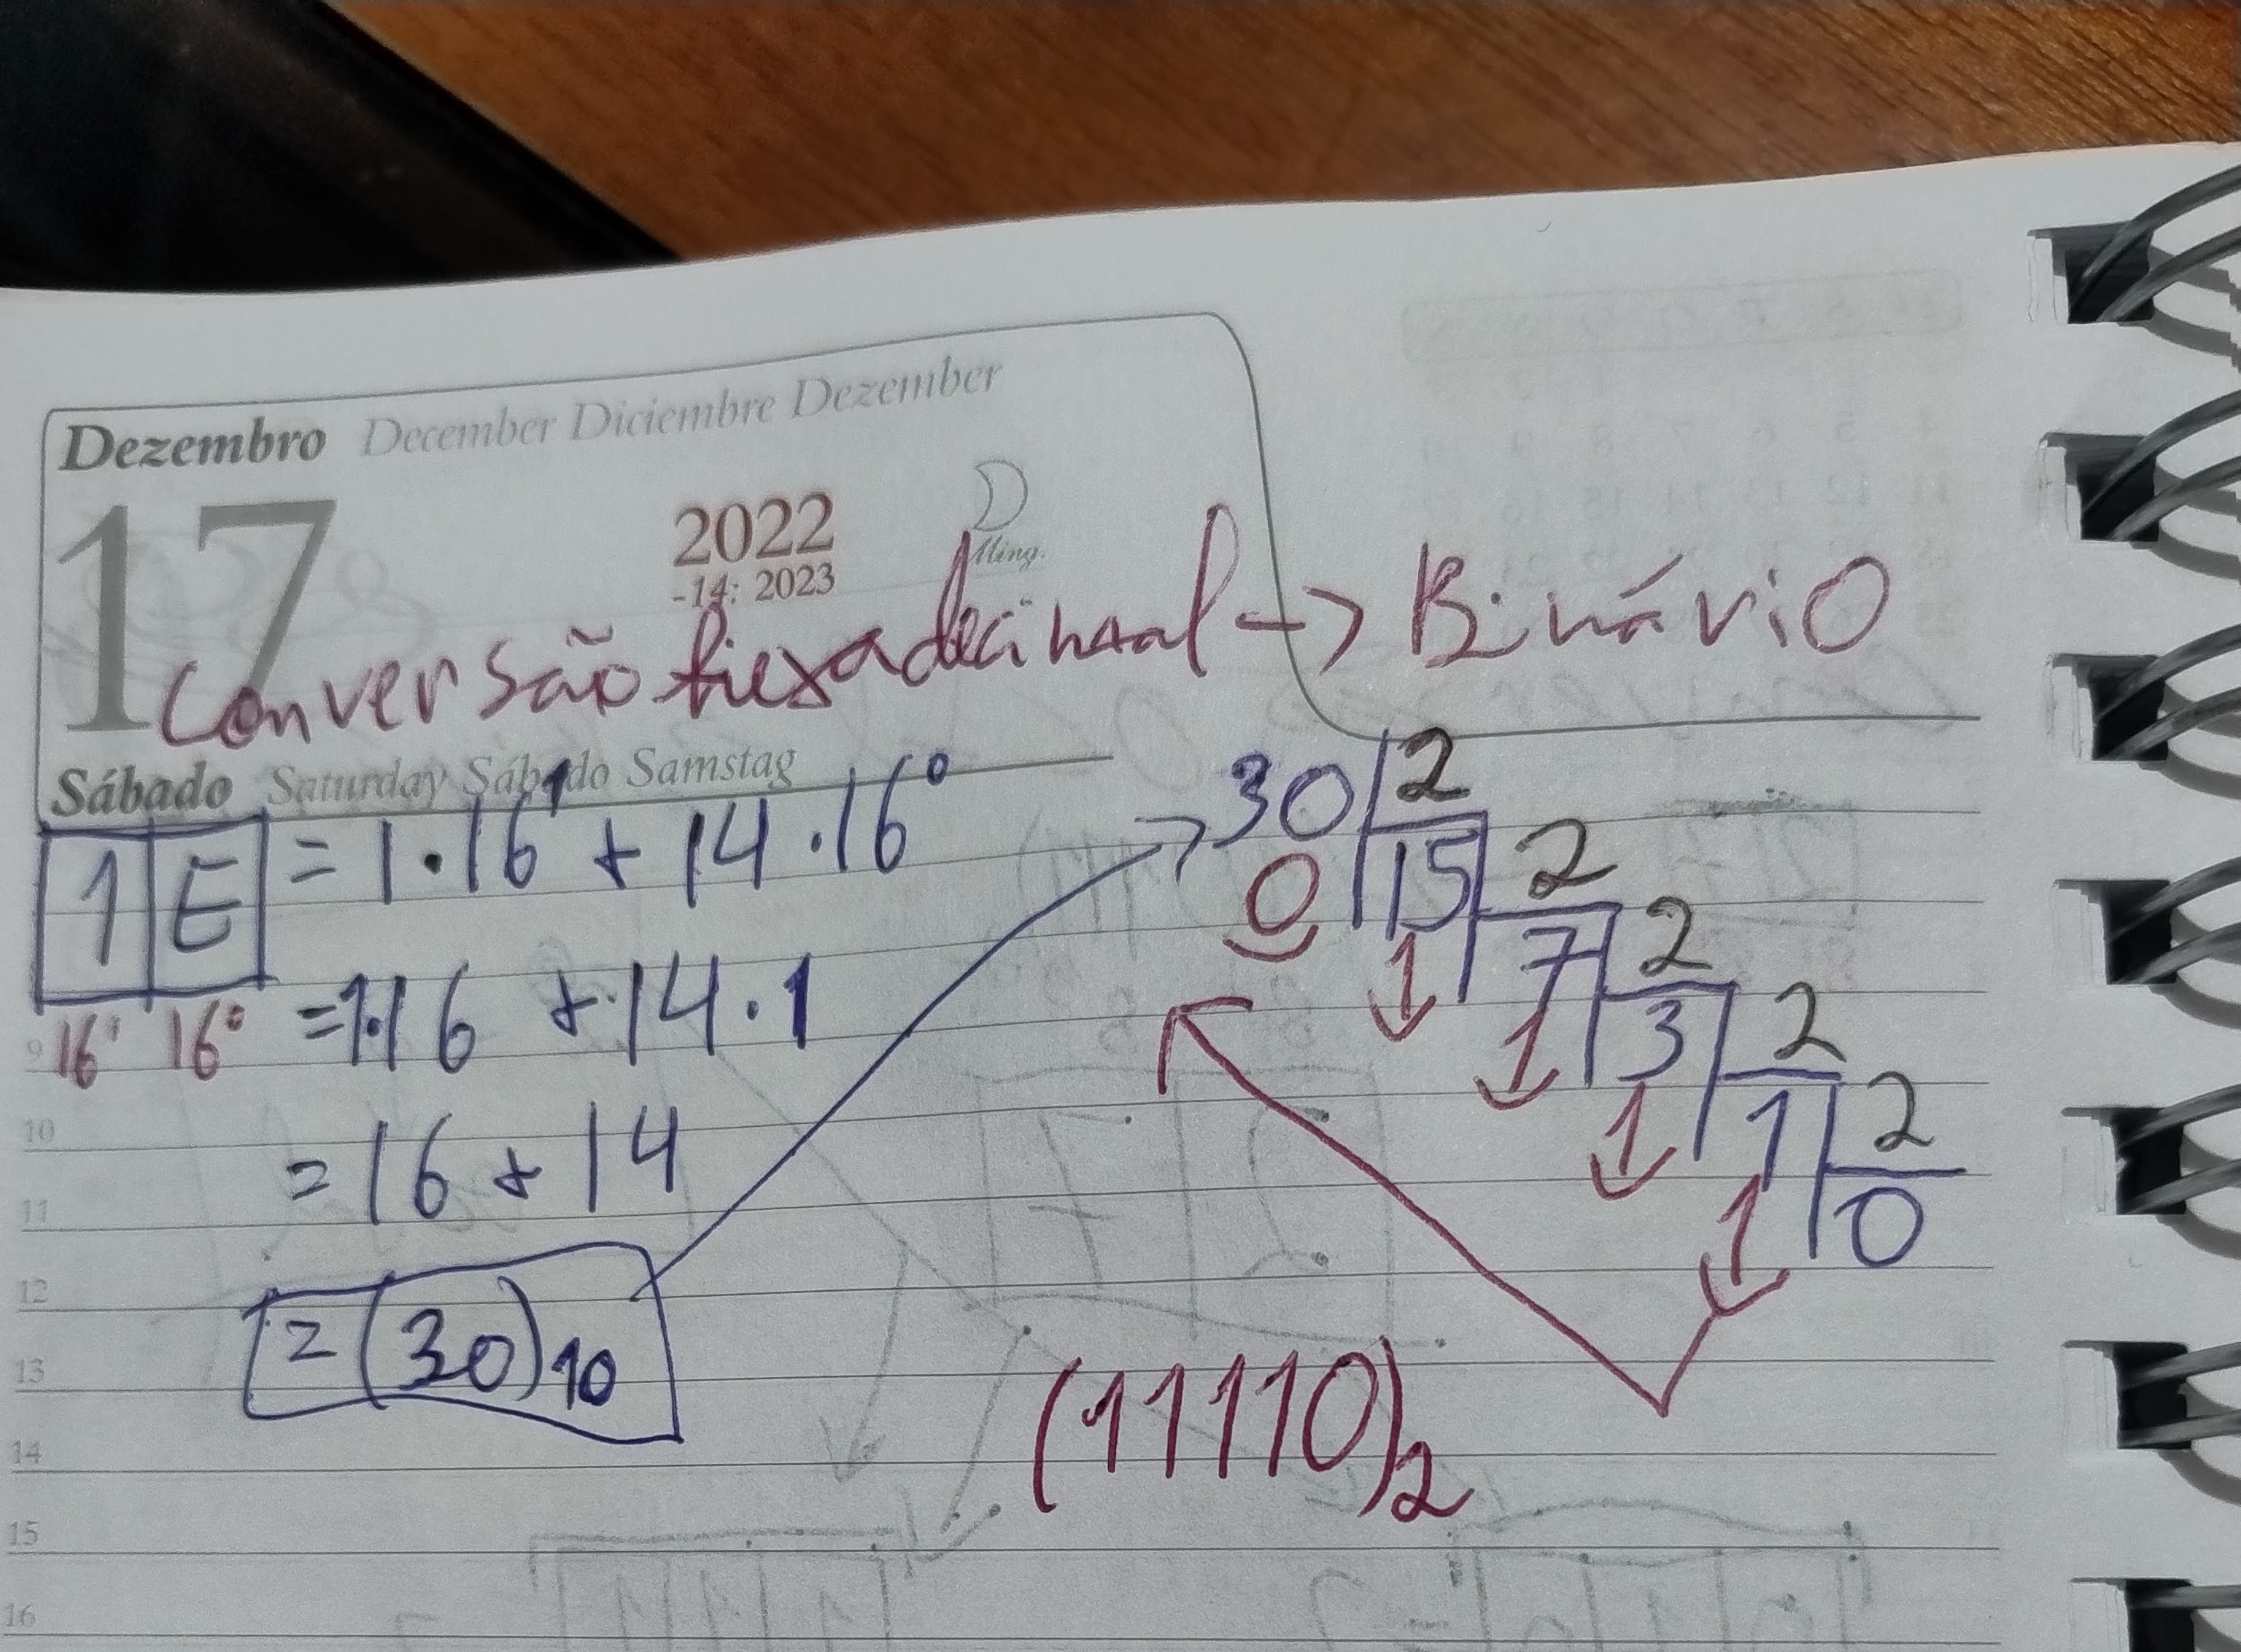 Dezembro December Diciembre Dezember
17
2022
-14: 2023
Ming.
Conversão hexadecimal -> Binário
Sábado Saturday Sábado Samstag
1 E = 1.16¹ + 14.16⁰
16¹ 16⁰
= 1.16 + 14.1
= 16 + 14
= (30)10
30 2
0 15 2
1 7 2
1 3 2
1 1 2
1 0
(11110)2
9
10
11
12
13
14
15
16